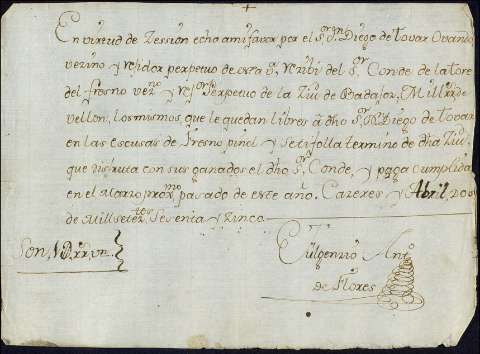 +
En virtud de Zession echa ami favor por el Sr. Dn Diego de tovar Ovando
vezino y rexidor perpetuo de esta va. Rezivi del Sr. Conde de la tore
del fresno vezo. y rexor. Perpetuo de la Ziud. de Badajoz, Mill Rs. de
vellon, los mismos que le quedan libres a dho Sr. Dn. Diego de tovar
en las escusas de Fresno pinel y Setifolla termino de dha Ziud.
que disfruta con sus ganados el dho Sr. Conde, y paga cumplida
en el Marzo proxmo. pasado de este año. Cazeres y Abril dos
de Mill setezos. Sesenta y Zinco
Son 1 D Rs. vn.
Fulgenzio Anto.
de Flores